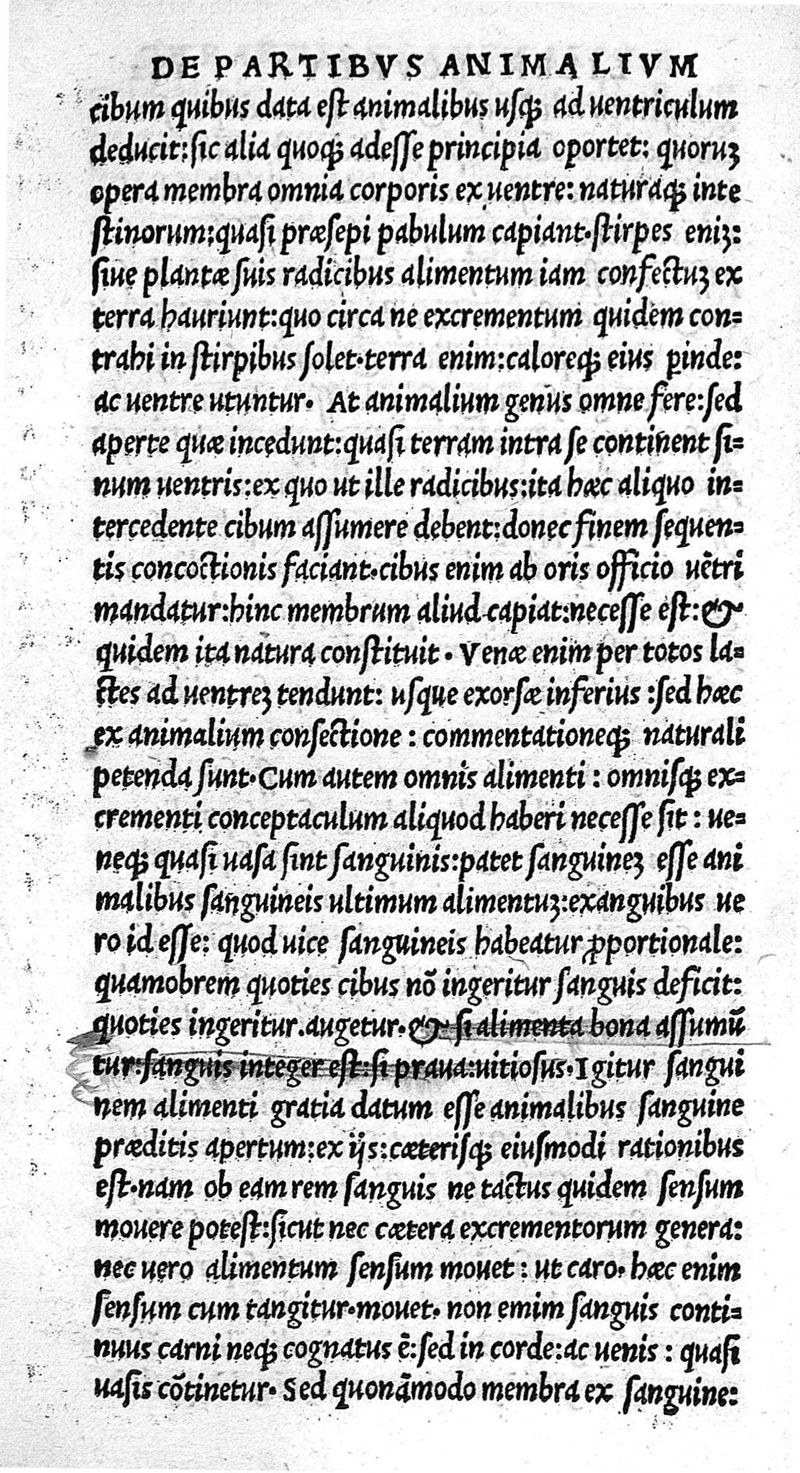 DE PARTIBVS ANIMALIVM
cibum quibus data est animalibus usqꝫ ad uentriculum
deducit: sic alia quoqꝫ adesse principia oportet: quoruꝫ
opera membra omnia corporis ex uentre: naturaqꝫ inte
stinorum: quasi præsepi pabulum capiant. stirpes eniꝫ:
siue plantæ suis radicibus alimentum iam confectuꝫ ex
terra hauriunt: quo circa ne excrementum quidem con=
trahi in stirpibus solet. terra enim: caloreqꝫ eius ꝑinde:
ac uentre utuntur. At animalium genus omne fere: sed
aperte quæ incedunt: quasi terram intra se continent si=
num uentris: ex quo ut ille radicibus: ita hæc aliquo in=
tercedente cibum assumere debent: donec finem sequen=
tis concoctionis faciant. cibus enim ab oris officio uētri
mandatur: hinc membrum aliud capiat: necesse est: &
quidem ita natura constituit. Venæ enim per totos la=
ctes ad uentreꝫ tendunt: usque exorsæ inferius: sed hæc
ex animalium consectione: commentationeqꝫ naturali
petenda sunt. Cum autem omnis alimenti: omnisqꝫ ex=
crementi conceptaculum aliquod haberi necesse sit: ue=
neqꝫ quasi uasa sint sanguinis: patet sanguineꝫ esse ani
malibus sanguineis ultimum alimentuꝫ: exanguibus ue
ro id esse: quod uice sanguineis habeatur ꝓportionale:
quamobrem quoties cibus nō ingeritur sanguis deficit:
quoties ingeritur. augetur. & si alimenta bona assumū
tur: sanguis integer est: si praua: uitiosus. Igitur sangui
nem alimenti gratia datum esse animalibus sanguine
præditis apertum: ex ijs: cæterisqꝫ eiusmodi rationibus
est. nam ob eam rem sanguis ne tactus quidem sensum
mouere potest: sicut nec cætera excrementorum genera:
nec uero alimentum sensum mouet: ut caro. hæc enim
sensum cum tangitur. mouet. non emim sanguis conti=
nuus carni neqꝫ cognatus ē: sed in corde: ac uenis: quasi
uasis cōtinetur. Sed quonāmodo membra ex sanguine: